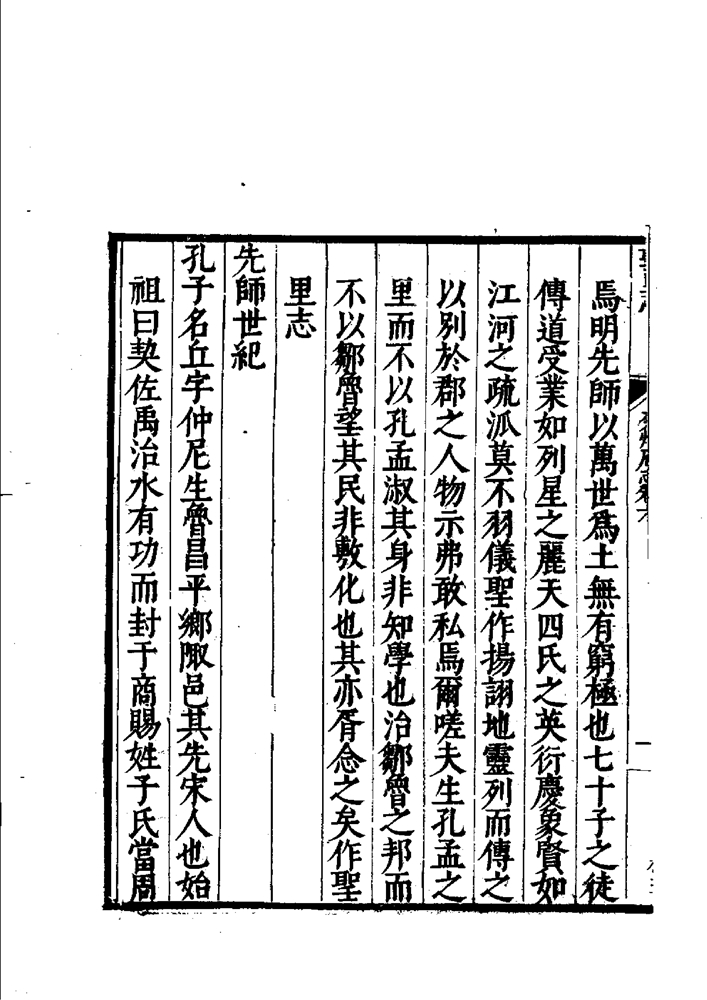 焉明先師以萬世爲土無有窮極也七十子之徒
傳道受業如列星之麗天四氏之英衍慶象賢如
江河之疏派莫不羽儀聖作揚詡地靈列而傳之
以別於郡之人物示弗敢私焉爾嗟夫生孔孟之
里而不以孔孟淑其身非知學也治鄒魯之邦而
不以鄒魯望其民非敷化也其亦胥念之矣作聖
里志
先師世紀
孔子名丘字仲尼生魯昌平鄉陬邑其先宋人也始
祖曰契佐禹治水有功而封于商賜姓子氏當周